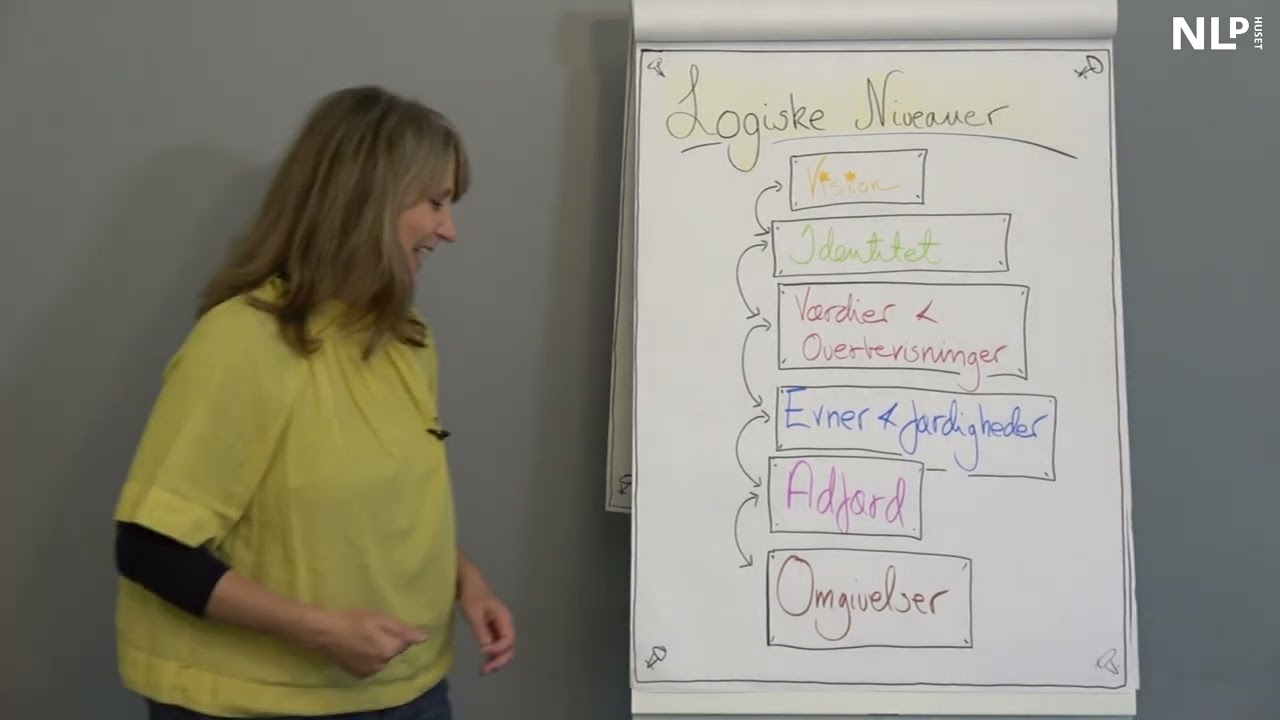 NLP HUSET
Logiske Niveauer
Vision
Identitet
Værdier &
Overbevisninger
Evner & færdigheder
Adfærd
Omgivelser